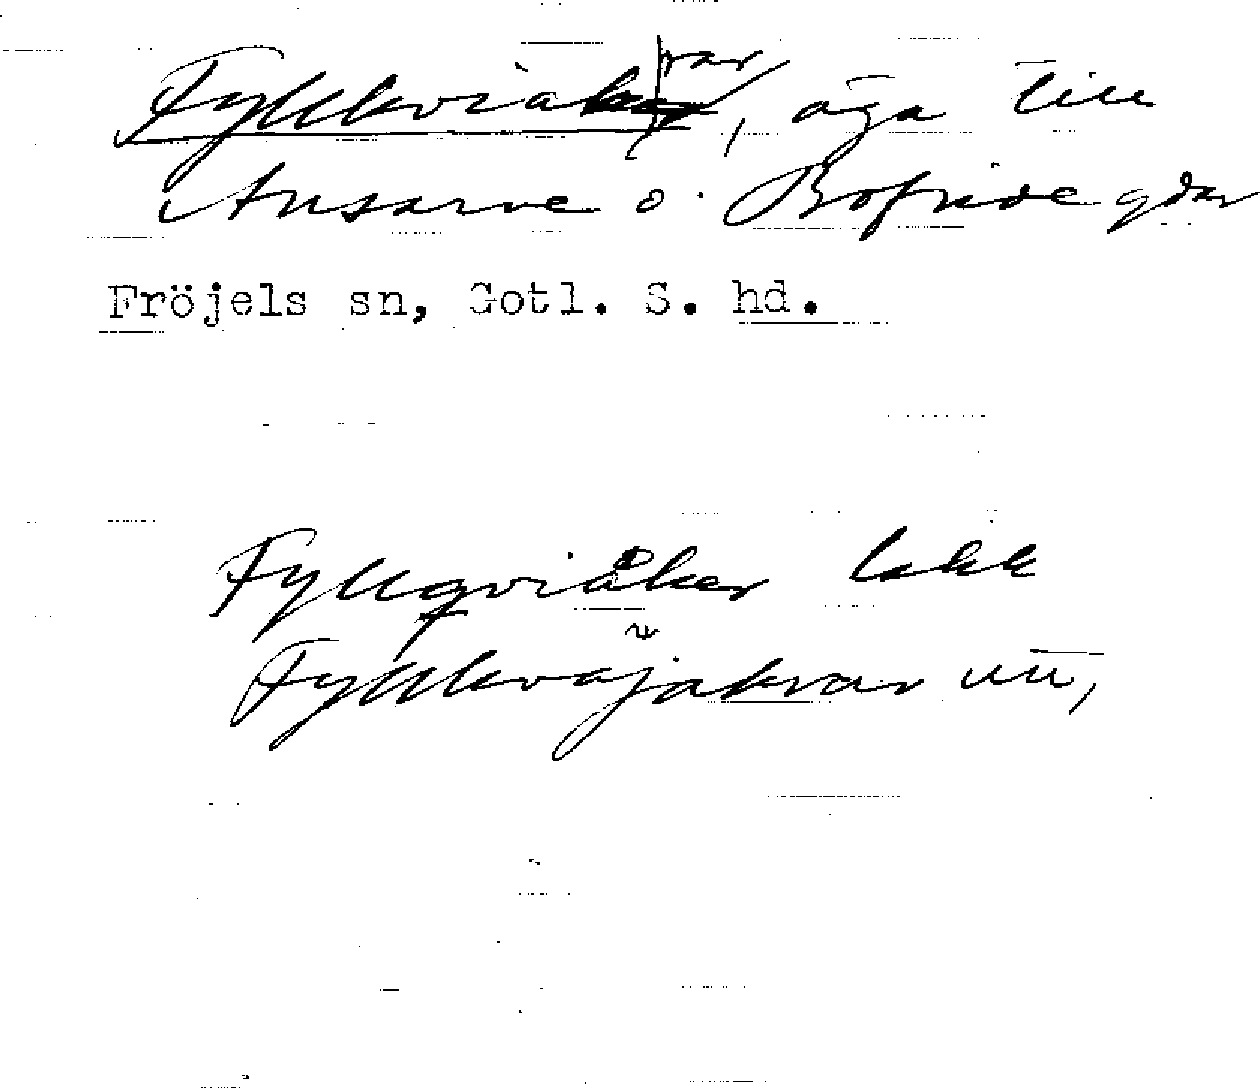 Fyllkviåkrar, äga till
Ansarve o. Bofride gdar
Fröjels sn, Gotl. S. hd.
Fyllqviåker lskk
Fyllkvajakrar un,